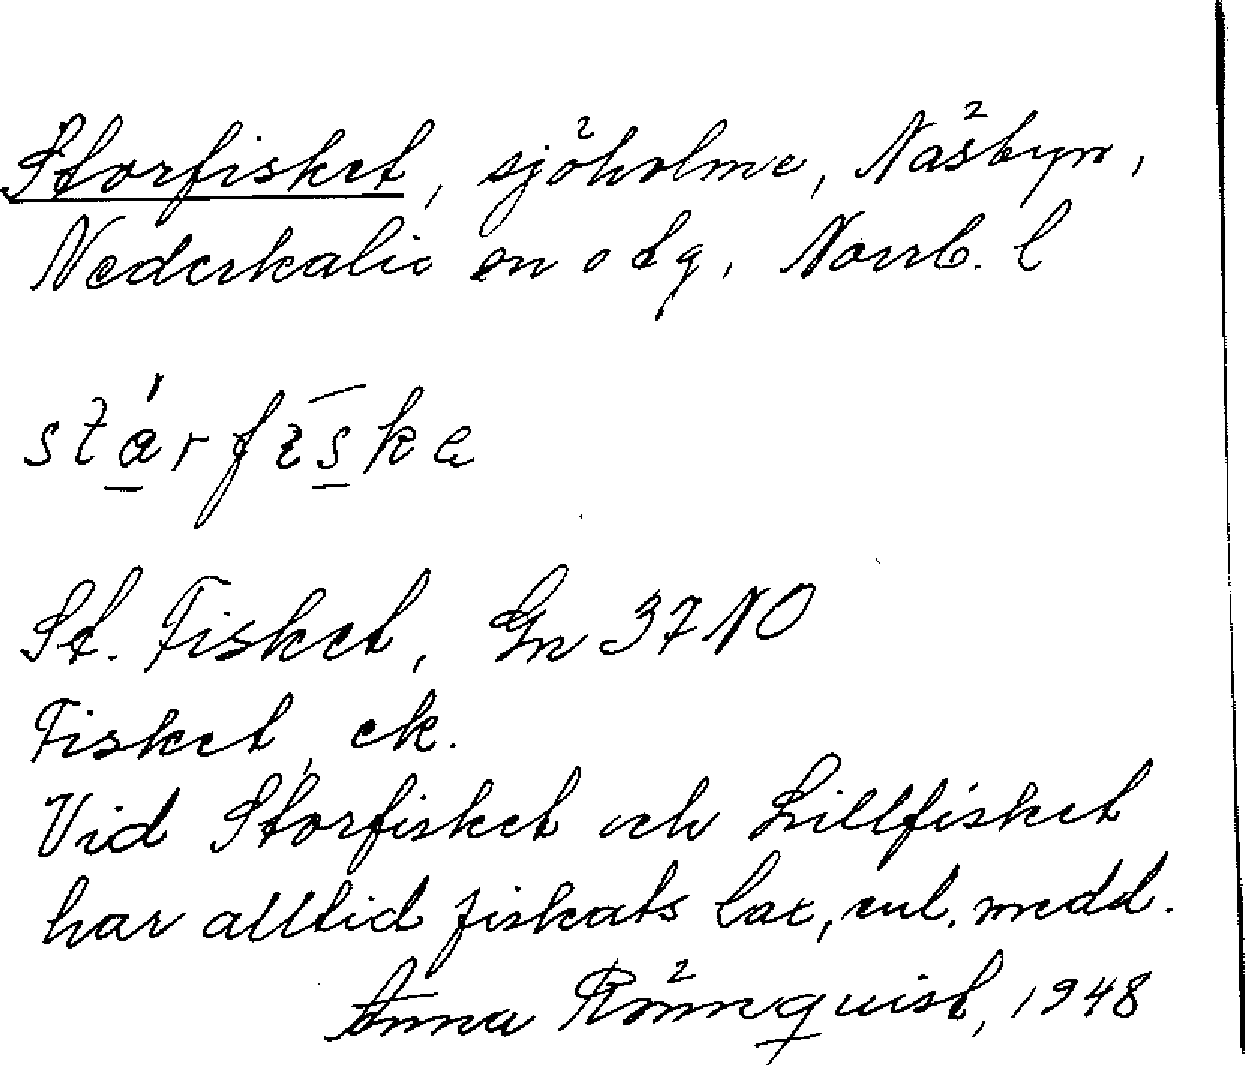 Storfisket, sjöholme, Näsbyn,
Nederkalix sn o tg, Norrb. l
stárfīska
St. Fisket, Gn 37 NO
Fisket, ek.
Vid Storfisket och Lillfisket
har alltid fiskats lax, enl. medd.
Anna Rönnquist, 1948